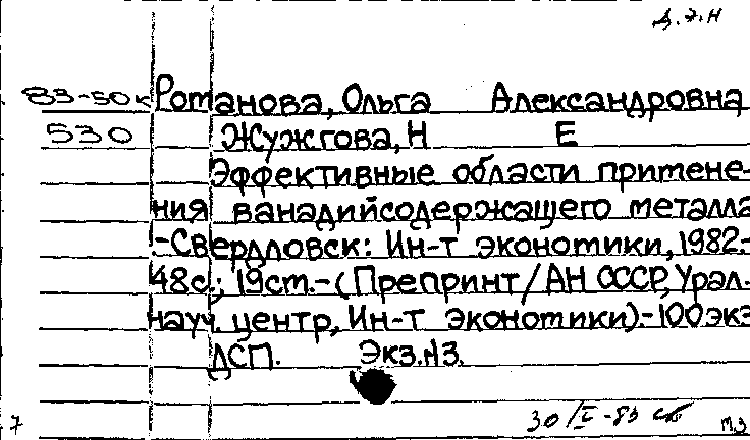 Д.7.Н
83-50к Романова, Ольга Александровна
530 Жужгова, Н Е
Эффективные области примене-
ния ванадийсодержащего металла
!-Свердловск: Ин-т экономики, 1982.-
48с.; 19ст.-(Препринт/АН СССР, Урал.
науч. центр, Ин-т экономики).-100экз
ДСП. Экз.N3.
7 30/I-83